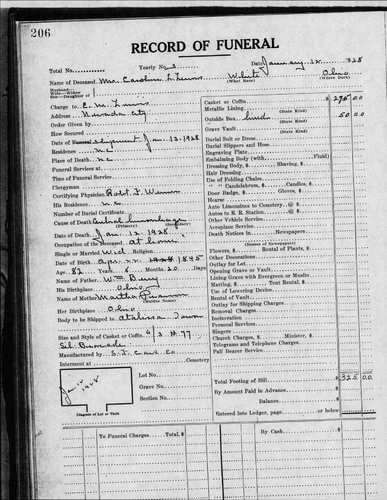 206
RECORD OF FUNERAL
Total No. Yearly No. 2 Date January 12 1928
Name of Deceased Mrs. Caroline L. White Ohio
(What Race) (Where Born)
Husband
Wife—Widow
Son—Daughter of
Charge to C. M.
Address Nevada City
Order Given by
How Secured
Date of Funeral shipment Jan. 13. 1928
Residence N.C.
Place of Death N.C.
Funeral Services at
Time of Funeral Service
Clergyman
Certifying Physician Robt. F.
His Residence N.C.
Number of Burial Certificate
Cause of Death hemorrhage
(Primary) (Secondary)
Date of Death Jan. 12 1928
Occupation of the Deceased at home
Single or Married Wid. Religion
Date of Birth Apr. 1845
Age 82 Years 8 Months 20 Days
Name of Father Wm
His Birthplace Ohio
Name of Mother Martha
(Maiden Name)
Her Birthplace Ohio
Body to be Shipped to Atalissa Iowa
Size and Style of Casket or Coffin 6/3 # 77
Sil.
Manufactured by Co
Interment at Cemetery
Lot No.
Grave No.
Section No.
Jan. 14
1928
Diagram of Lot or Vault
Casket or Coffin $ 275 00
Metallic Lining
(State Kind)
Outside Box 50 00
(State Kind)
Grave Vault
(State Kind)
Burial Suit or Dress
Burial Slippers and Hose
Engraving Plate
Embalming Body (with Fluid)
Dressing Body, $ Shaving, $
Hair Dressing
Use of Folding Chairs
" " Candelabrum, $ Candles, $
Door Badge, $ Gloves, $
Hearse
Auto Limousines to Cemetery @ $
Autos to R. R. Station @ $
Other Vehicle Service
Aeroplane Service
Death Notices in
(Names of Newspapers)
Flowers, $ Rental of Plants, $
Other Decorations
Outlay for Lot
Opening Grave or Vault
Lining Grave with Evergreen or Muslin
Matting, $ Tent Rental, $
Use of Lowering Device
Rental of Vault
Outlay for Shipping Charges
Removal Charges
Incineration
Personal Services
Singers
Church Charges, $ Minister, $
Telegrams and Telephone Charges
Pall Bearer Service
Total Footing of Bill $ 325 00
By Amount Paid in Advance
Balance
Entered into Ledger, page or below
To Funeral Charges Total, $ By Cash $